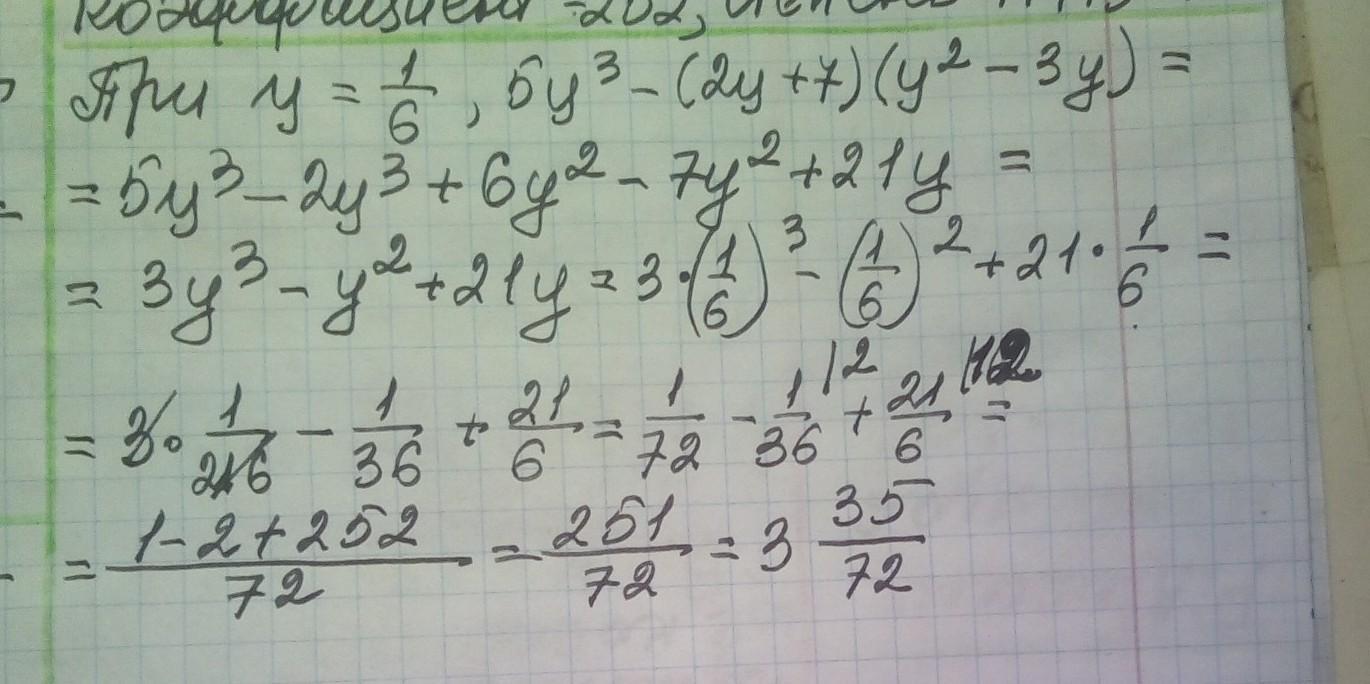 Коэффициент -202,
При y = 1/6, 5y³ - (2y + 7)(y² - 3y) =
= 5y³ - 2y³ + 6y² - 7y² + 21y =
= 3y³ - y² + 21y = 3·(1/6)³ - (1/6)² + 21·1/6 =
= 3·1/216 - 1/36 + 21/6 = 1/72 - 1/36|2 + 21/6|12 =
= (1-2+252)/72 = 251/72 = 3 35/72